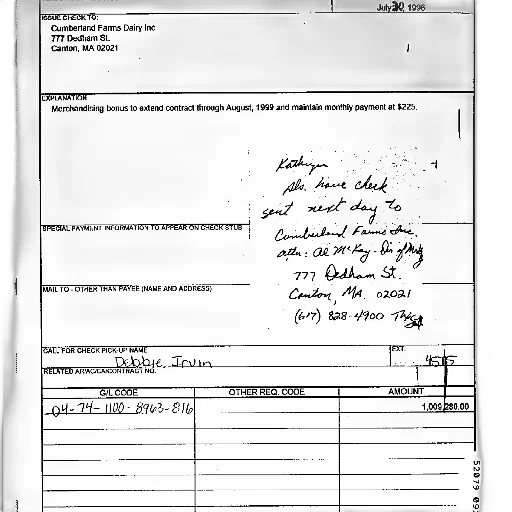 July 30, 1996
ISSUE CHECK TO:
Cumberland Farms Dairy Inc
777 Dedham St.
Canton, MA 02021
EXPLANATION
Merchandising bonus to extend contract through August, 1999 and maintain monthly payment at $225.
Kathryn
Pls. have check
sent next day to
Cumberland Farms Inc.
attn: Al McKay - Dir of Mktg
777 Dedham St.
Canton, MA. 02021
(617) 828-4900
SPECIAL PAYMENT INFORMATION TO APPEAR ON CHECK STUB
MAIL TO - OTHER THAN PAYEE (NAME AND ADDRESS)
CALL FOR CHECK PICK-UP NAME
Debbie Irvin
EXT.
G/L CODE OTHER REQ. CODE AMOUNT
04-74-1100-8963-816 1,009,280.00
52079 09